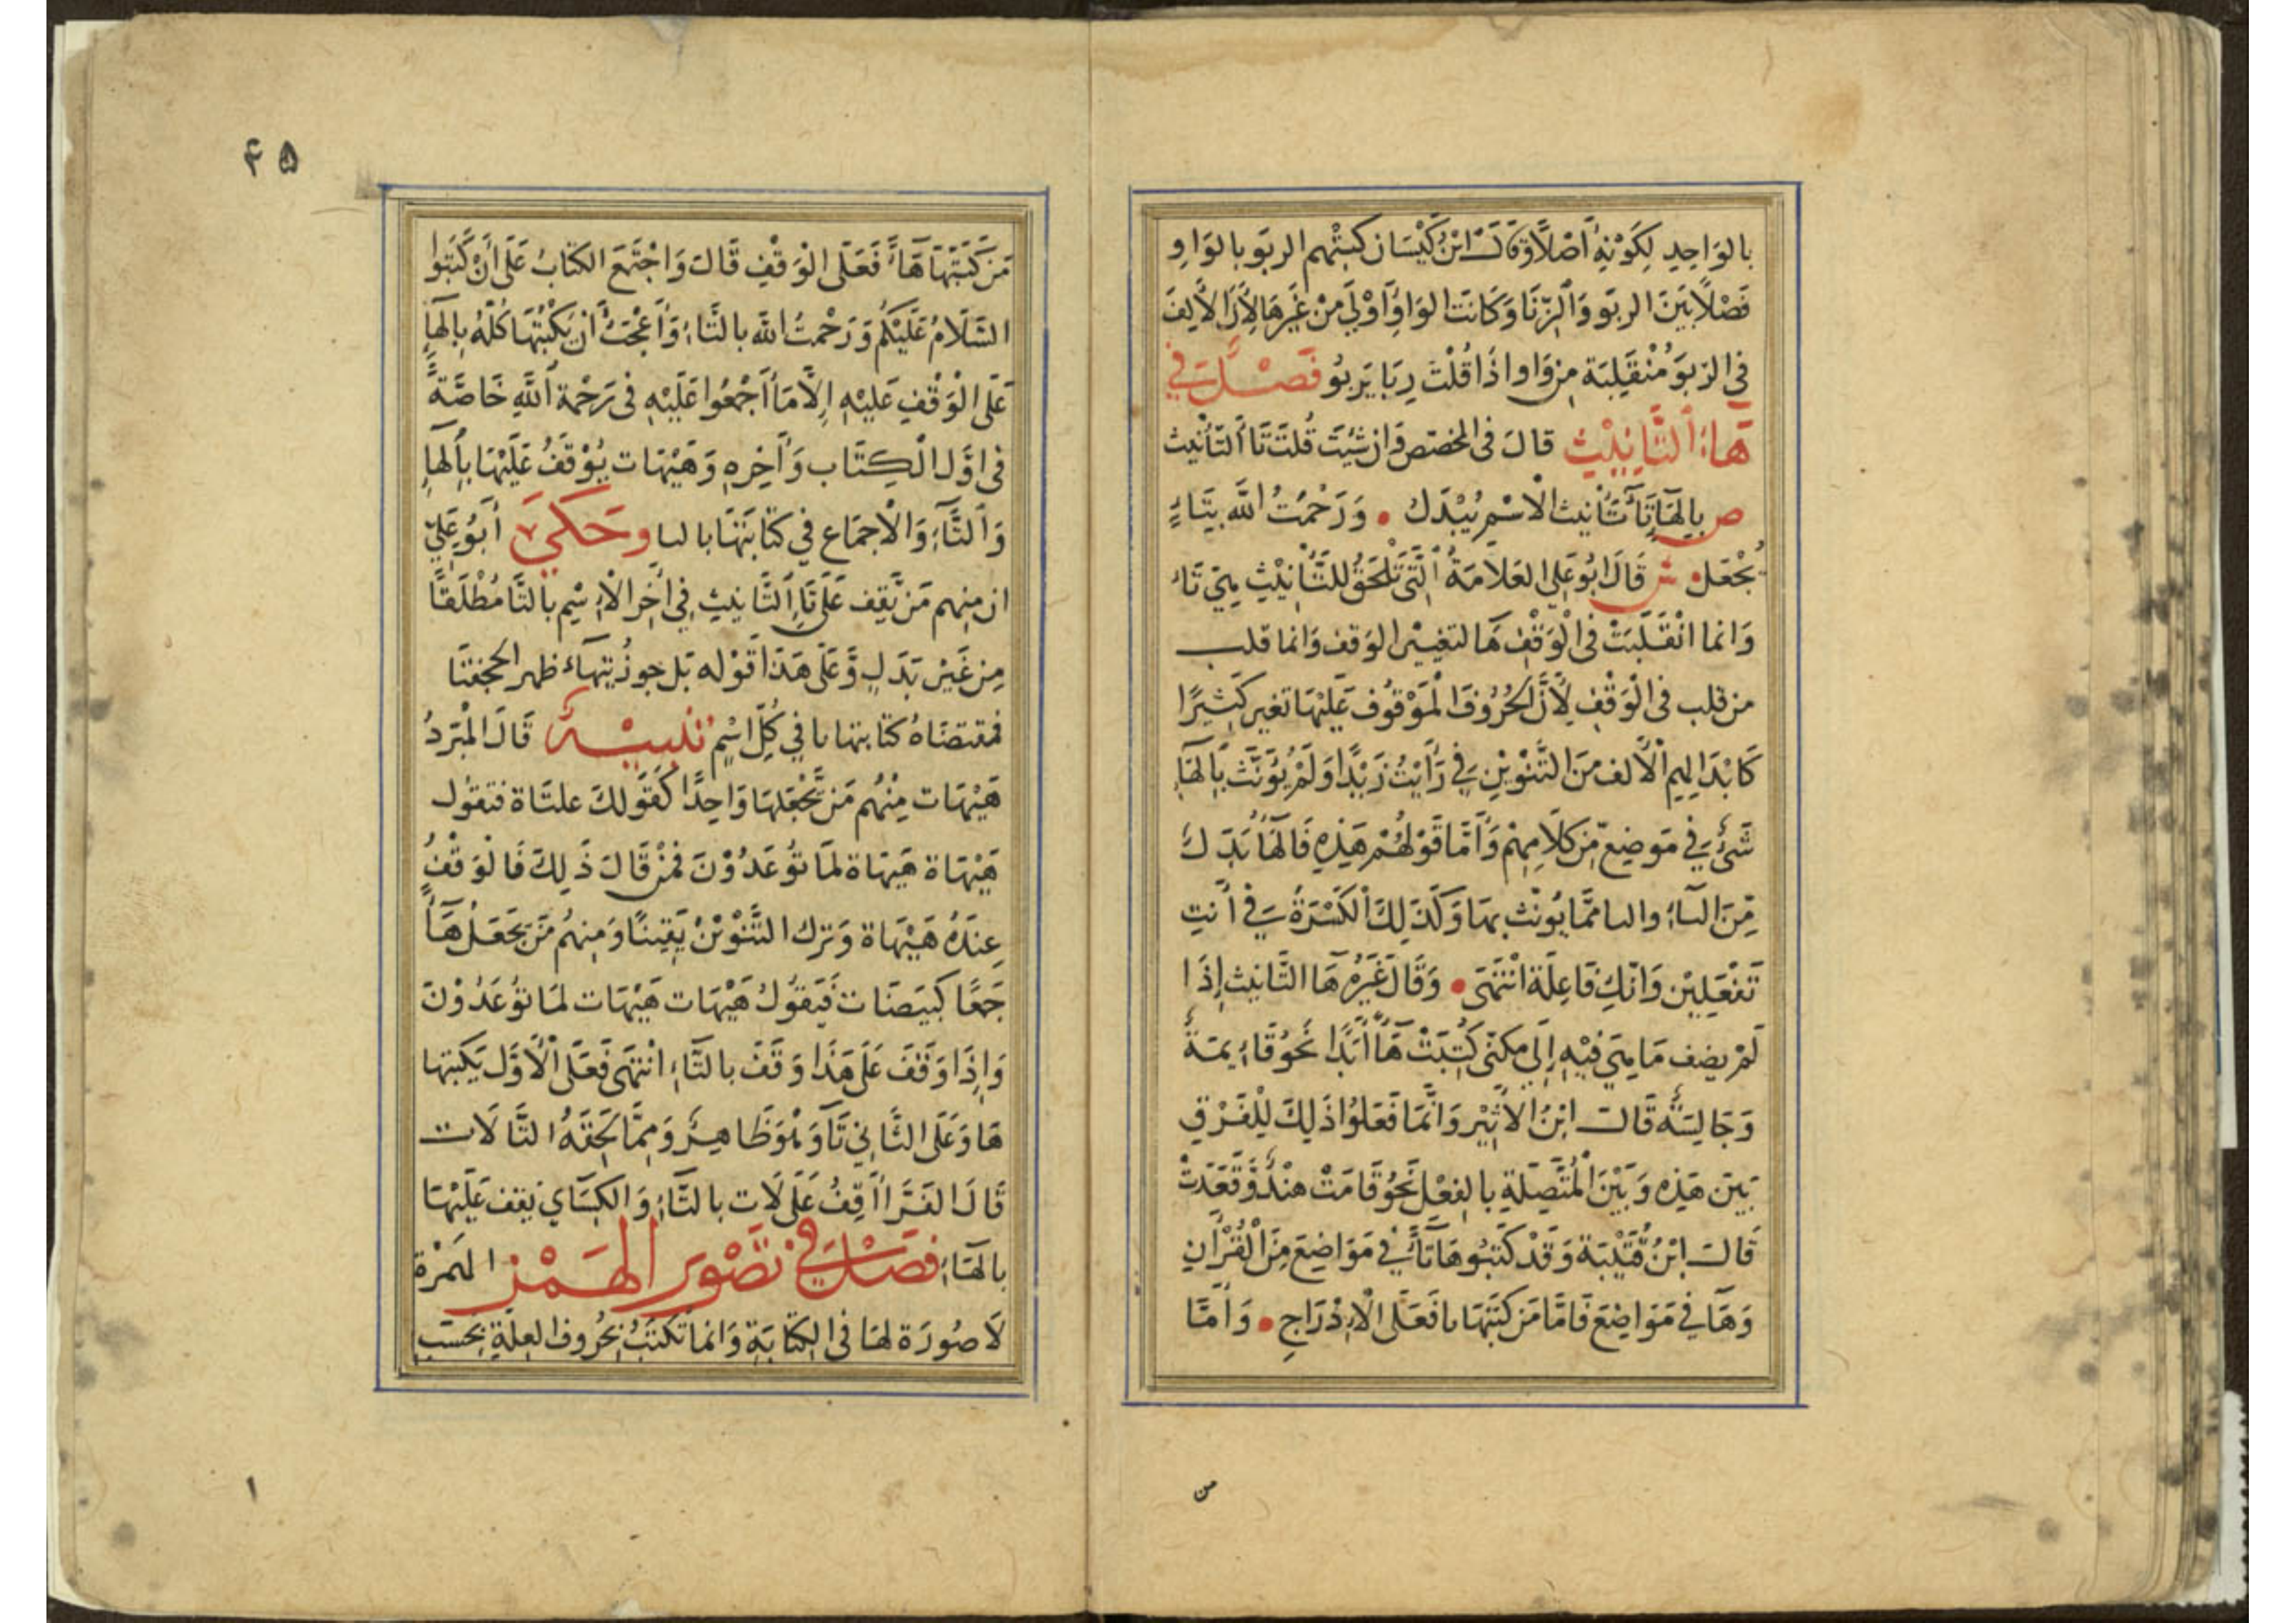 بالوَاحِدِ لِكَوْنِهِ أَصْلًا وَقَالَ ابْنُ كَيْسَان كَتبتُهم الربَو بالوَاوِ
فَصْلًا بَيْنَ الربَو وَالزِّنَا وَكَانَت الوَاوُ أَوْلَى مِنْ غَيْرِهَا لِأَنَّ الأَلِفَ
فِي الرّبَو مُنْقَلِبَة مِن وَاو اذَا قُلْتَ رِبَا يَربوُ فَصْلٌ فِي
هَاءِ التَّانِيْثِ قالَ فى المخصّص وَان شِئتَ قُلتَ تَا التّأنيث
ص بِالهَا تَا تَأنيث الاسْمِ يُبْدَل • وَرَحْمَتُ اللَّه بِتَاءٍ
يُجْعَل • ش قَالَ ابُو عَلِي العَلَامَةُ الَّتِي تَلْحَقُ لِلتَّأنِيْثِ هِيَ تَاء
وَانما انْقَلَبَتْ فى الْوَقْفِ هَا لتغيير الوَقف وَانما قلب
من قلب فى الْوَقْفِ لِأَنَّ الحُرُوفَ الْمَوْقُوف عَلَيْهَا تغير كَثِيرًا
كَابْدَالِهِم الأَلف مِنَ التَّنْوِيْنِ فِي رَأَيْتُ زَيْدًا وَلَمْ يُوَنَّث بِالهَاءِ
شَىْءٌ فِي مَوضِع مِن كَلَامِهِمْ وَأَمَّا قَوْلُهُمْ هَذِهِ فَالهَاءُ بَدَل
مِّنَ الياءِ والىا ممَّا يُونّث بهَا وَكَذَلِكَ الكَسْرَةُ فِي أَنتِ
تَفْعَلِيْن وَانّكِ فَاعِلَة انْتَهَى • وَقَالَ غَيْرُه هَا التَّانيث إِذَا
لَمْ يضف مَا هِيَ فِيْهِ إِلَى مكنّى كُتِبَتْ هَاءً أَبَدًا نَحْوُ قَائِمَةٌ
وَجَالِسَةٌ قَالَ ابْنُ الأَثِيْر وَانَّمَا فَعَلوُا ذَلِكَ لِلْفَرْقِ
بَيْنَ هَذِهِ وَبَيْنَ الْمُتَّصِلَةِ بالفِعْلِ نَحْوُ قَامَتْ هِنْدٌ وَقَعَدَتْ
قَالَ ابْنُ قُتَيْبَة وَقَدْ كَتَبُوهَا تَاءً فِي مَوَاضِعَ مِنَ الْقُرْآنِ
وَهَا فِي مَوَاضِعَ فَامَّا مَن كَتَبَهَا ىا فَعَلَى الْإِدْرَاجِ • وَأَمَّا
من
۴۵
مَن كَتَبَهَا هَاءً فَعَلَى الْوَقْفِ قَالَ وَاجْتَمَعَ الكتَابُ عَلَى أَنْ كَتَبُوا
السَّلَامُ عَلَيْكُم وَرَحْمتُ اللَّه بالتَّاءِ وَأَعْجَبُ أَن يَكْتُبَهَا كُلّهُ بِالهَاءِ
عَلَى الْوَقْفِ عَليْهِ إِلَّا مَا أَجْمَعُوا عَلَيْهِ فى رَحْمة اللَّهِ خَاصَّةً
فى اوّل الْكِتَاب وَآخِرِهِ وَهَيْهَات يُوْقَفُ عَلَيْهَا بِالهَاءِ
وَالتَّاءِ وَالْاجمَاع فِي كتَابَتَهَا بالىا وحَكَى أَبُو عَلِيّ
ان مِنهم مَن يَّقِف عَلَى تَاءِ التَّانيثِ فِي آخِر الْاسْم بالتَّا مُطْلَقًا
مِن غَيْر بَدَلٍ وَّعَلى هَذَا قَوْله بَل جوز تيهاء ظهر الحجفتَا
فمقتضَاهُ كتَابتها ىا فِي كُلّ اسْمٍ تنبيْهٌ قَالَ الْمبَرّدُ
هَيْهَات مِنْهُم مَن يَّجْعَلهَا وَاحِدًا كَقَولكَ علتَاة فتقول
هَيْهَاة هَيْهَاة لمَا تُوعَدُوْنَ فَمَنْ قَالَ ذَلِكَ فَالوَقْفُ
عِندَهُ هَيْهَاة وَترك التَّنْوْيْنْ يَقِينًا وَمِنهُم مَّن يَجعَلُهَا
جَمْعًا كبيَضَات فَيَقوُل هَيْهَات هَيْهَات لمَا تُوعَدُوْنَ
وَاِذَا وَقَفَ عَلَى هَذَا وَقَفَ بالتَّاءِ انْتهَى فَعَلَى الْأَوَّل يَكتبهَا
هَا وَعَلَى الثَّانِي تَا وَهُوَ ظَاهِرٌ وَمِمَّا لَحِقَهُ التَّا لَات
قَالَ الفَرَّا أَقِفُ عَلَى لَات بالتَّاءِ وَالكِسَاي يَقِف عَلَيْهَا
بالهَاءِ فَصْلٌ فِي تصْوِير الهَمْز الهَمْزة
لَا صُورَة لهَا فى الكتَابَةِ وَانما تكتَبُ بحُروف العِلَّةِ بحَسَبِ
۱